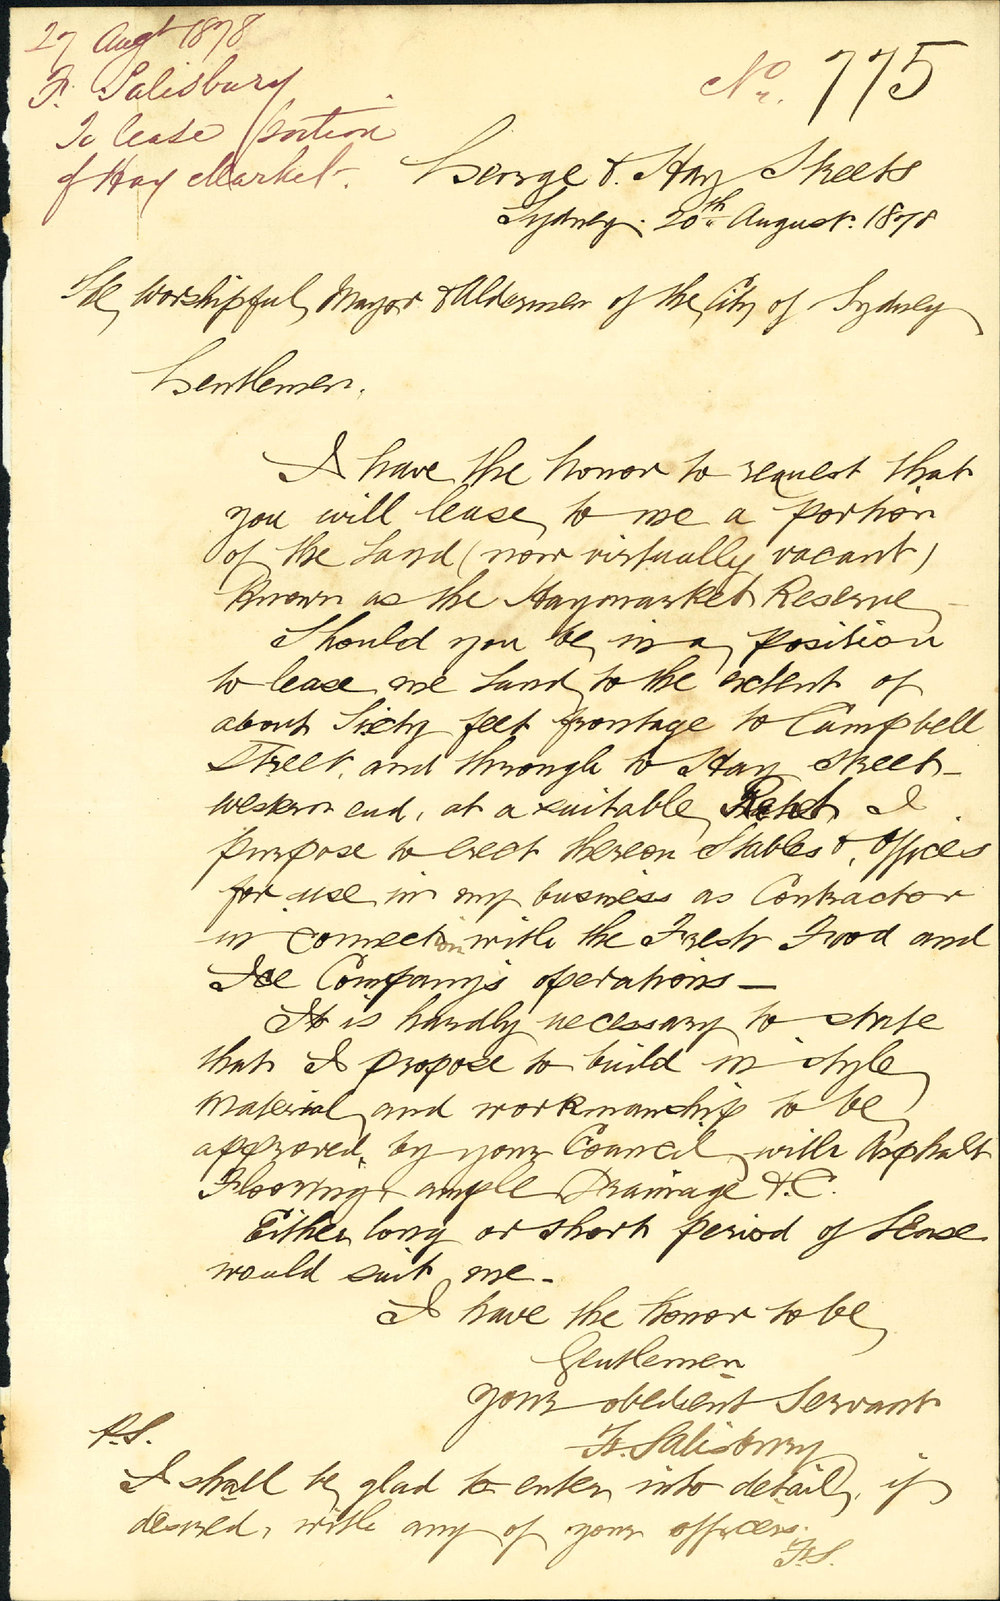 27 Augt 1878
F. Salisbury
To lease portion
of Hay Market.
No. 775
George & Hay Streets
Sydney. 20th August. 1878
The Worshipful Mayor & Aldermen of the City of Sydney
Gentlemen.
I have the honor to request that
you will lease to me a portion
of the Land (now virtually vacant)
known as the Haymarket Reserve
Should you be in a position
to lease me Land to the extent of
about Sixty feet frontage to Campbell
Street, and through to Hay Street -
western end, at a suitable Rental I
purpose to erect thereon Stables & Offices
for use in my business as Contractor
in connection with the Fresh Food and
Ice Company's operations —
It is hardly necessary to state
that I propose to build in style
material and workmanship to be
approved by your Council with Asphalt
Flooring, ample Drainage &.C.
Either long or short period of Lease
would suit me -
I have the honor to be
Gentlemen
your obedient Servant
F. Salisbury
P.S.
I shall be glad to enter into detail, if
desired, with any of your officers.
F.S.